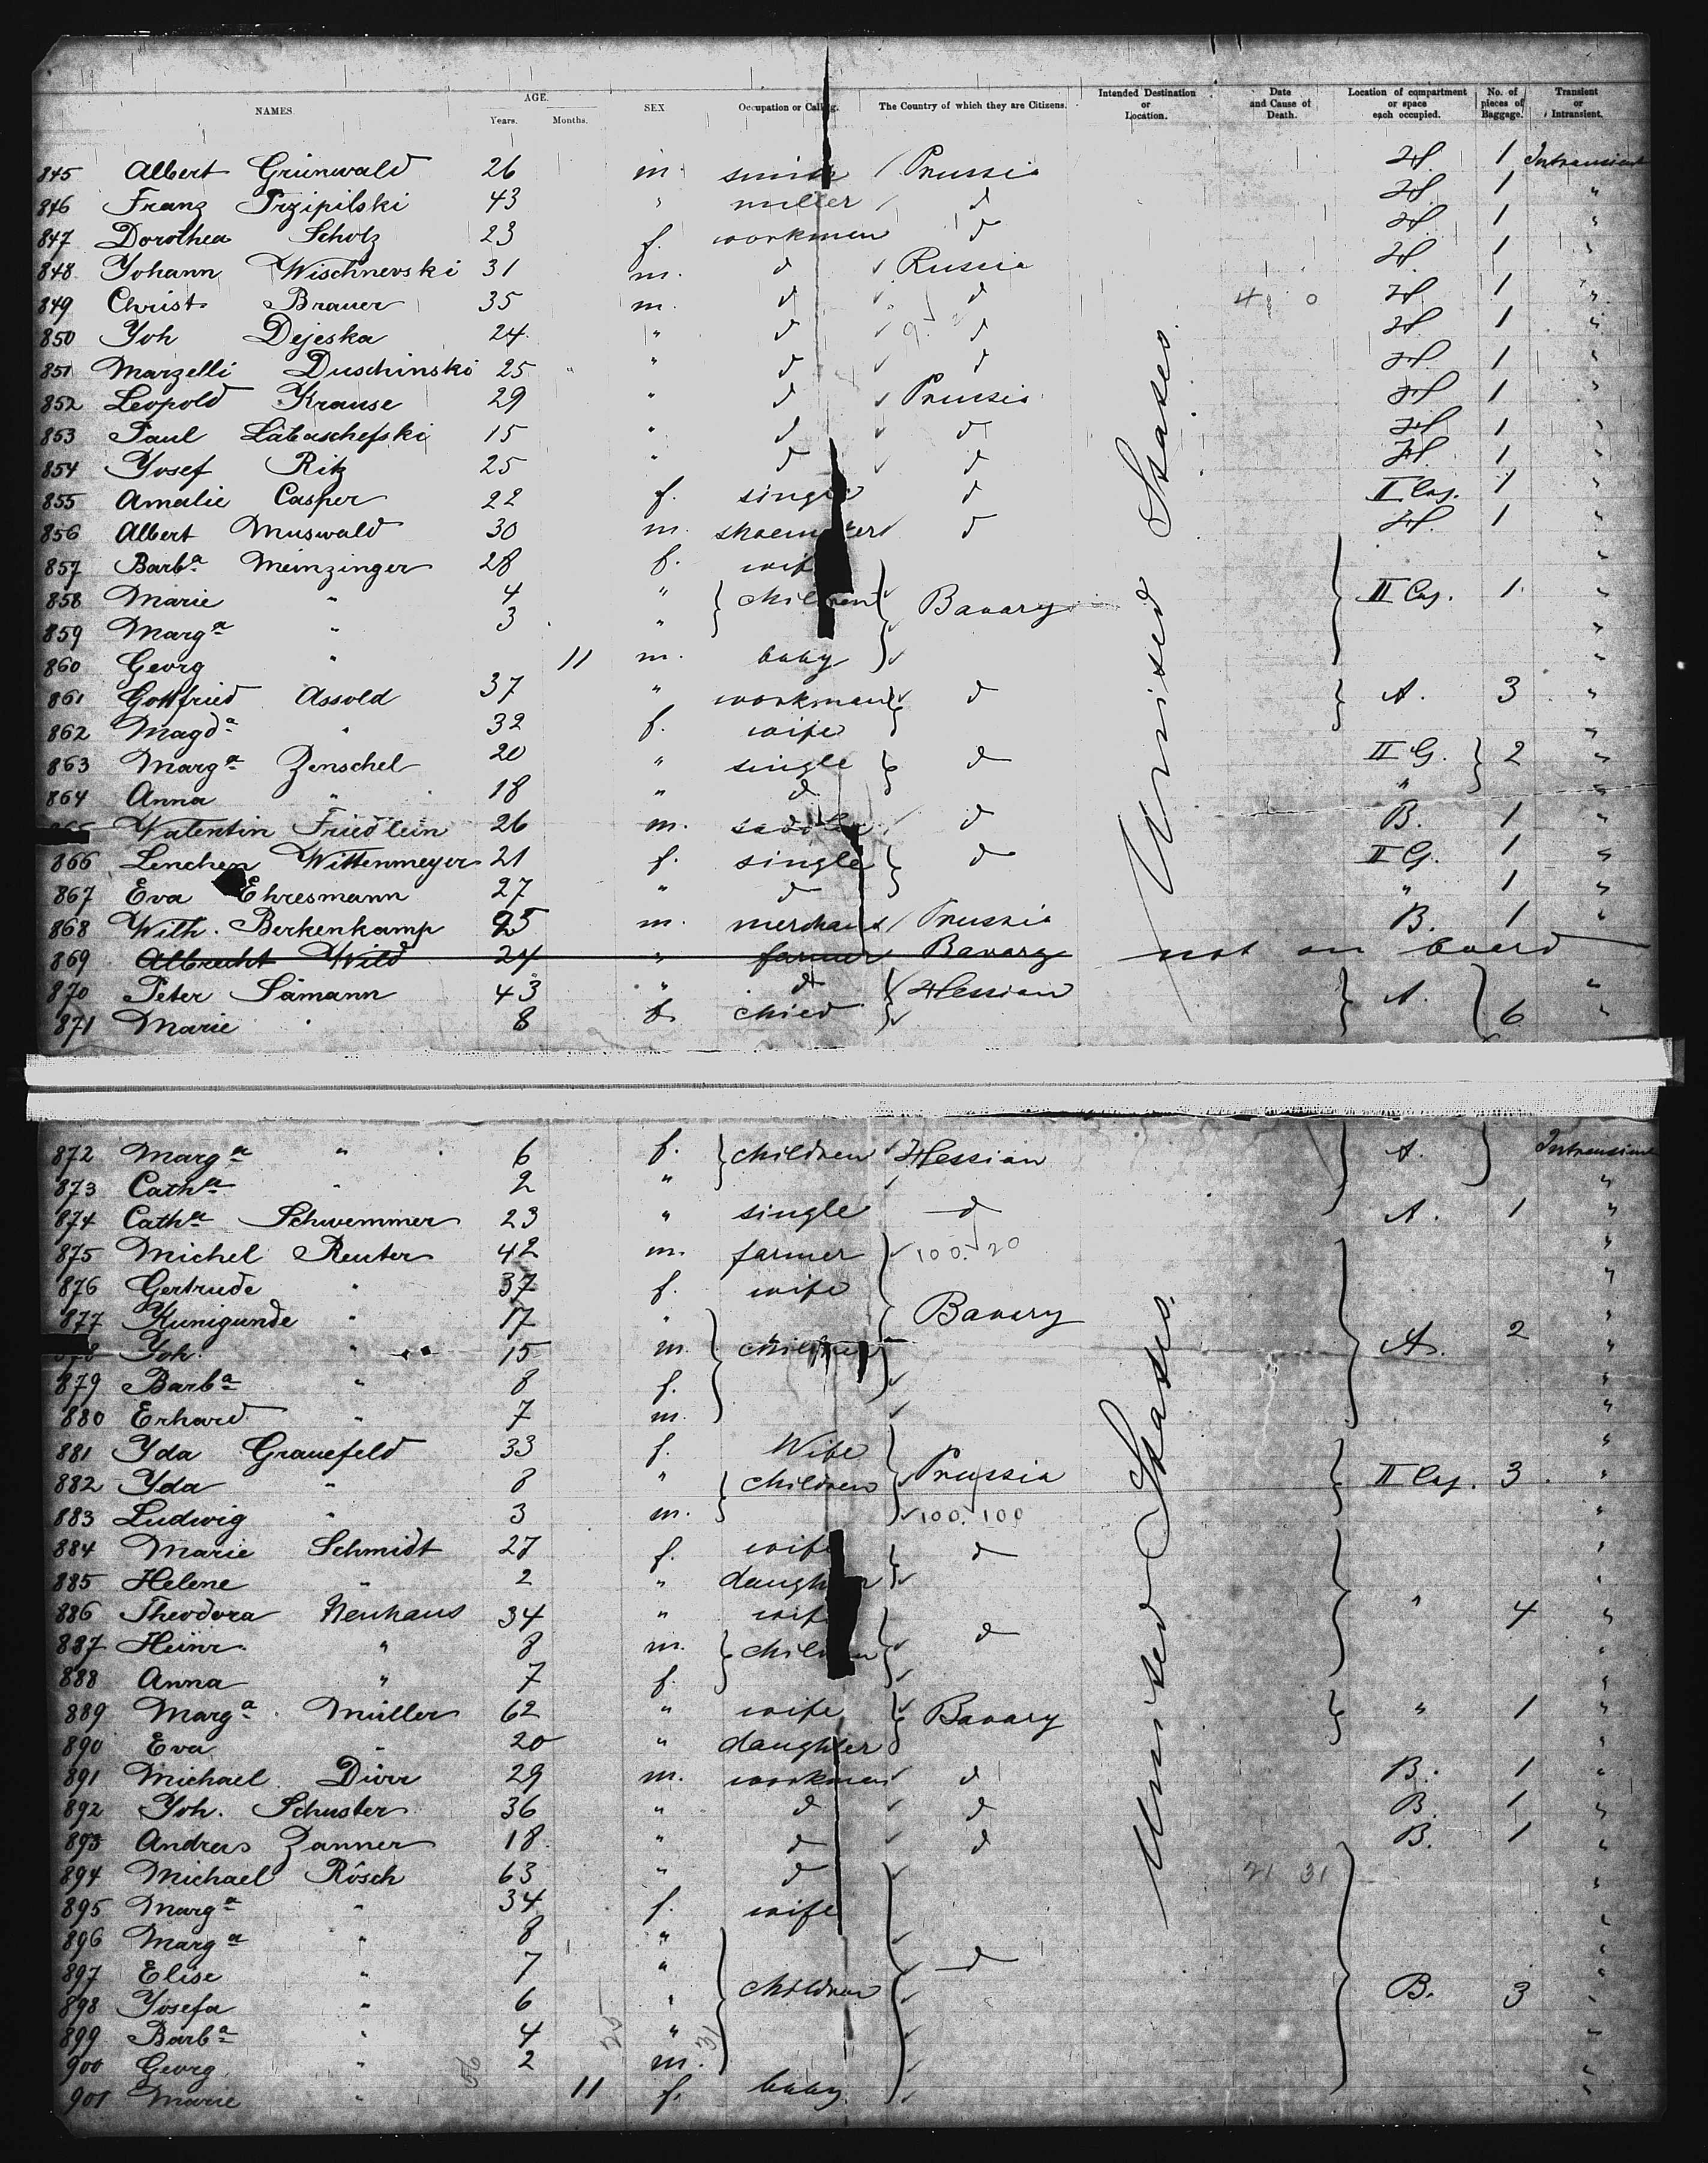 NAMES. AGE. Years. Months. SEX Occupation or Calling. The Country of which they are Citizens. Intended Destination or Location. Date and Cause of Death. Location of compartment or space each occupied. No. of pieces of Baggage. Transient or Intransient.
845 Albert Grünwald 26 m. smith Prussia H 1 Intransient
846 Franz Przipilski 43 " miller d H 1 "
847 Dorothea Scholz 23 f. workmen d H 1 "
848 Johann Wischnevski 31 m. d Russia H 1 "
849 Christ. Brauer 35 m. d d H 1 "
850 Joh Dejeska 24 " d d H 1 "
851 Marzelli Duschinski 25 " d d H 1 "
852 Leopold Krause 29 " d Prussia H 1 "
853 Paul Labaschefski 15 " d d H 1 "
854 Josef Ritz 25 " d d H 1 "
855 Amalie Casper 22 f. single d II Cag. 1 "
856 Albert Muswald 30 m. shoemaker d H. 1 "
857 Barba Meinzinger 28 f. wife "
858 Marie " 4 " children Bavary II Cag. 1 "
859 Marga " 3 " "
860 Georg " 11 m. baby "
861 Gottfried Assold 37 " workman d A. 3 "
862 Magda " 32 f. wife "
863 Marga Zenschel 20 " single d II G. 2 "
864 Anna " 18 " d " "
865 Valentin Friedlein 26 m. saddler d B. 1 "
866 Lenchen Wittenmeyer 21 f. single d II G. 1 "
867 Eva Ehresmann 27 " d " 1 "
868 Wilh. Berkenkamp 25 m. merchant Prussia B. 1 "
869 Albrecht Wild 24 " farmer Bavary not on board
870 Peter Sämann 43 " d Hessian A. 6 "
871 Marie " 8 f. child "
United States.
872 Marga " 6 f. children Hessian A. Intransient
873 Catha " 2 " "
874 Catha Schwemmer 23 " single d A. 1 "
875 Michel Reuter 42 m. farmer 100. 20 "
876 Gertrude " 37 f. wife "
877 Kunigunde " 17 " Bavary "
878 Joh. " 15 m. children A. 2 "
879 Barba " 8 f. "
880 Erhard " 7 m. "
881 Ida Grauefeld 33 f. Wife "
882 Ida " 8 " children Prussia II Cag. 3 "
883 Ludwig " 3 m. 100. 100 "
884 Marie Schmidt 27 f. wife d "
885 Helene " 2 " daughter "
886 Theodora Neuhaus 34 " wife " 4 "
887 Heinr. " 8 m. children d "
888 Anna " 7 f. "
889 Marga Müller 62 " wife Bavary " 1 "
890 Eva " 20 " daughter "
891 Michael Dürr 29 m. workman d B. 1 "
892 Joh. Schuster 36 " d d B. 1 "
893 Andreas Zanner 18 " d d B. 1 "
894 Michael Rösch 63 " d 21 31 "
895 Marga " 34 f. wife "
896 Marga " 8 " "
897 Elise " 7 " d "
898 Josefa " 6 " children B. 3 "
899 Barba " 4 " "
900 Georg " 2 m. "
901 Marie " 11 f. baby "
United States.